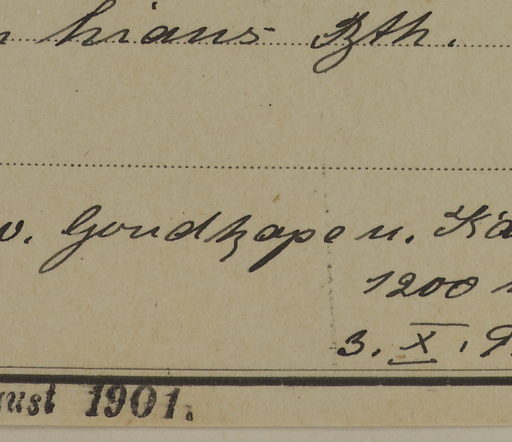 hians Bth.
v. Gondkapen. Ka
1200
3. X. 9
gust 1901.